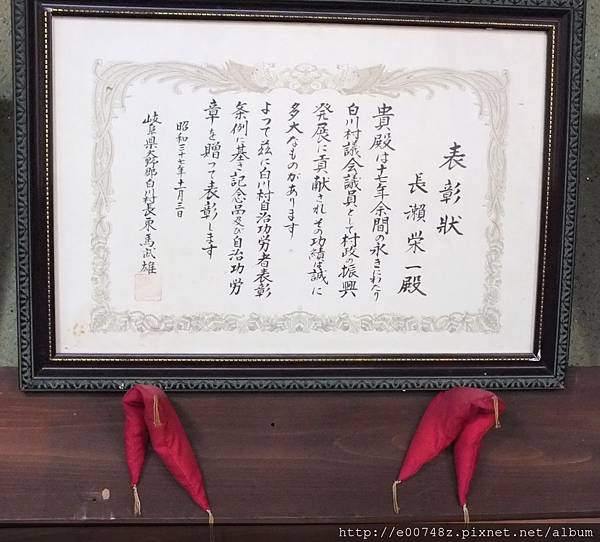 表彰狀
長瀬栄一殿
貴殿は十七年余間の永きにわたり
白川村議会議員として村政の振興
発展に貢献されその功績は誠に
多大なものがあります
よつて茲に白川村自治功労者表彰
条例に基き記念品及び自治功労
章を贈つて表彰します
昭和三十七年十一月三日
岐阜県大野郡白川村長東馬武雄
http://e00748z.pixnet.net/album